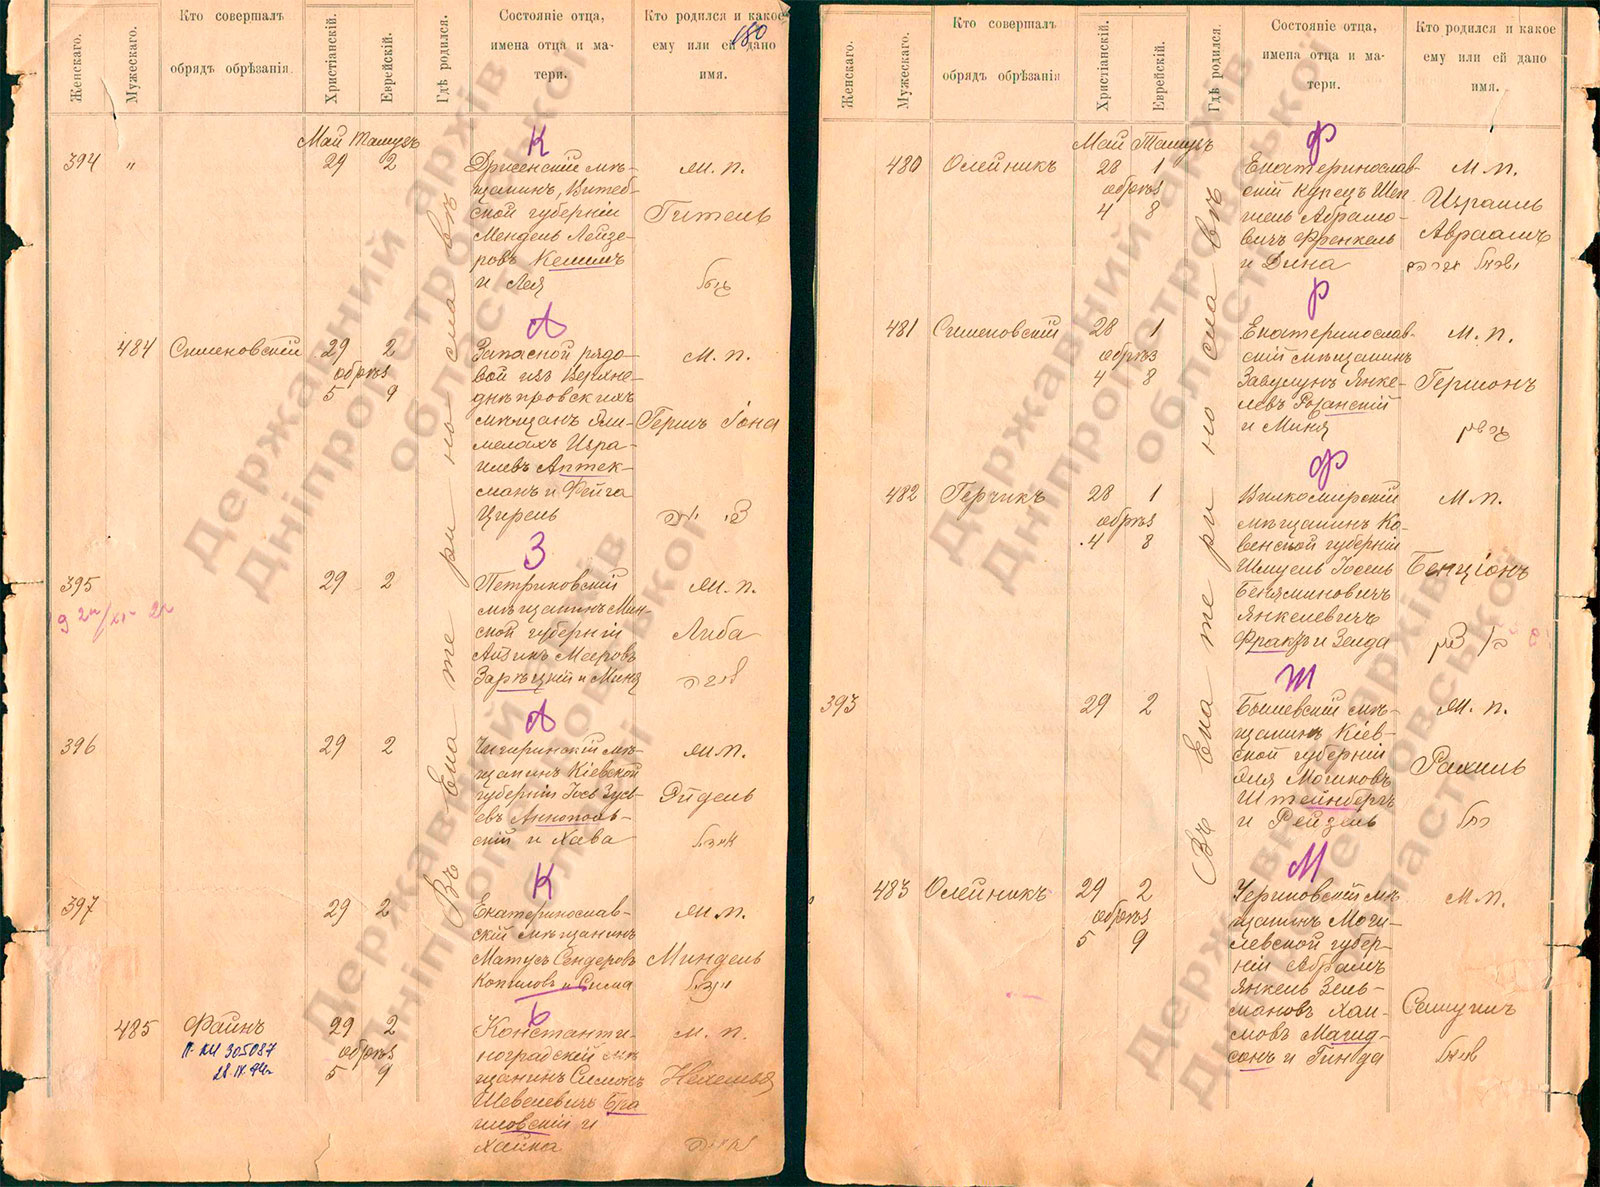 Женскаго.
Мужескаго.
Кто совершалъ
обрядъ обрѣзанія.
Христіанскій.
Еврейскій.
Гдѣ родился.
Состояніе отца,
имена отца и ма-
тери.
Кто родился и какое
ему или ей дано
имя.
180
Май Тамузъ
К
394 " 29 2
Дрисенскій мѣ-
щанинъ, Витеб-
ской губерніи
Мендель Лейзе-
ровъ
и Лея
м. п.
Гитель
А
484 Сименовскій 29 2
обрѣз
5 9
Запасной рядо-
вой изъ Верхне-
днѣпровскихъ
мѣщанъ Эли-
мелахъ Изра-
илевъ Аптек-
манъ и Фейга
Цирель
м. п.
Гершъ Іона
З
395 29 2
Петриковскій
мѣщанинъ Мин-
ской губерніи
Айзикъ Мееровъ
Зарѣцкій и Миня
м. п.
Либа
А
396 29 2
Чигиринскій мѣ-
щанинъ Кіевской
губерніи Іосъ Зусь-
евъ Аннополь-
скій и Хава
м. п.
Эйдель
К
397 29 2
Екатеринослав-
скій мѣщанинъ
Матусъ Сендеровъ
Копиловъ и Сима
м. п.
Миндель
485 Файнъ 29 2
обрѣз
5 9
305087
Константи-
ноградскій мѣ
щанинъ Симонъ
Шевелевичъ Бра
иловскій и
Хайка
м. п.
Нехемья
Въ Ека те ри но сла вѣ
Женскаго.
Мужескаго.
Кто совершалъ
обрядъ обрѣзанія
Христіанскій.
Еврейскій.
Гдѣ родился.
Состояніе отца,
имена отца и ма-
тери.
Кто родился и какое
ему или ей дано
имя.
Май Тамузъ
Ф
480 Олейникъ 28 1
обрѣз
4 8
Екатеринослав-
скій купецъ Шен-
шель Абрамо-
вичъ Френкель
и Дина
м. п.
Израиль
Авраамъ
Р
481 Сименовскій 28 1
обрѣз
4 8
Екатеринослав-
скій мѣщанинъ
Завулунъ Янке-
левъ Розанскій
и Миня
м. п.
Гершонъ
Ф
482 Герчикъ 28 1
обрѣз
4 8
Вилкомирскій
мѣщанинъ Ко-
венской губерніи
Шмуель Іосель
Беняминовичъ
Янкелевичъ
Фракъ и Зелда
м. п.
Бенціонъ
Ш
393 29 2
Бышевскій мѣ-
щанинъ Кіев-
ской губерніи
Эля Мошковъ
Штейнбергъ
и Рейзель
м. п.
Рахиль
М
483 Олейникъ 29 2
обрѣз
5 9
Чериковскій мѣ
щанинъ Моги-
левской губер-
ніи Абрамъ
Янкель Зель-
мановъ Хаи-
мовъ Магид-
сонъ и Гинда
м. п.
Самуилъ
Въ Ека те ри но сла вѣ
Державний архів
Дніпропетровської
області